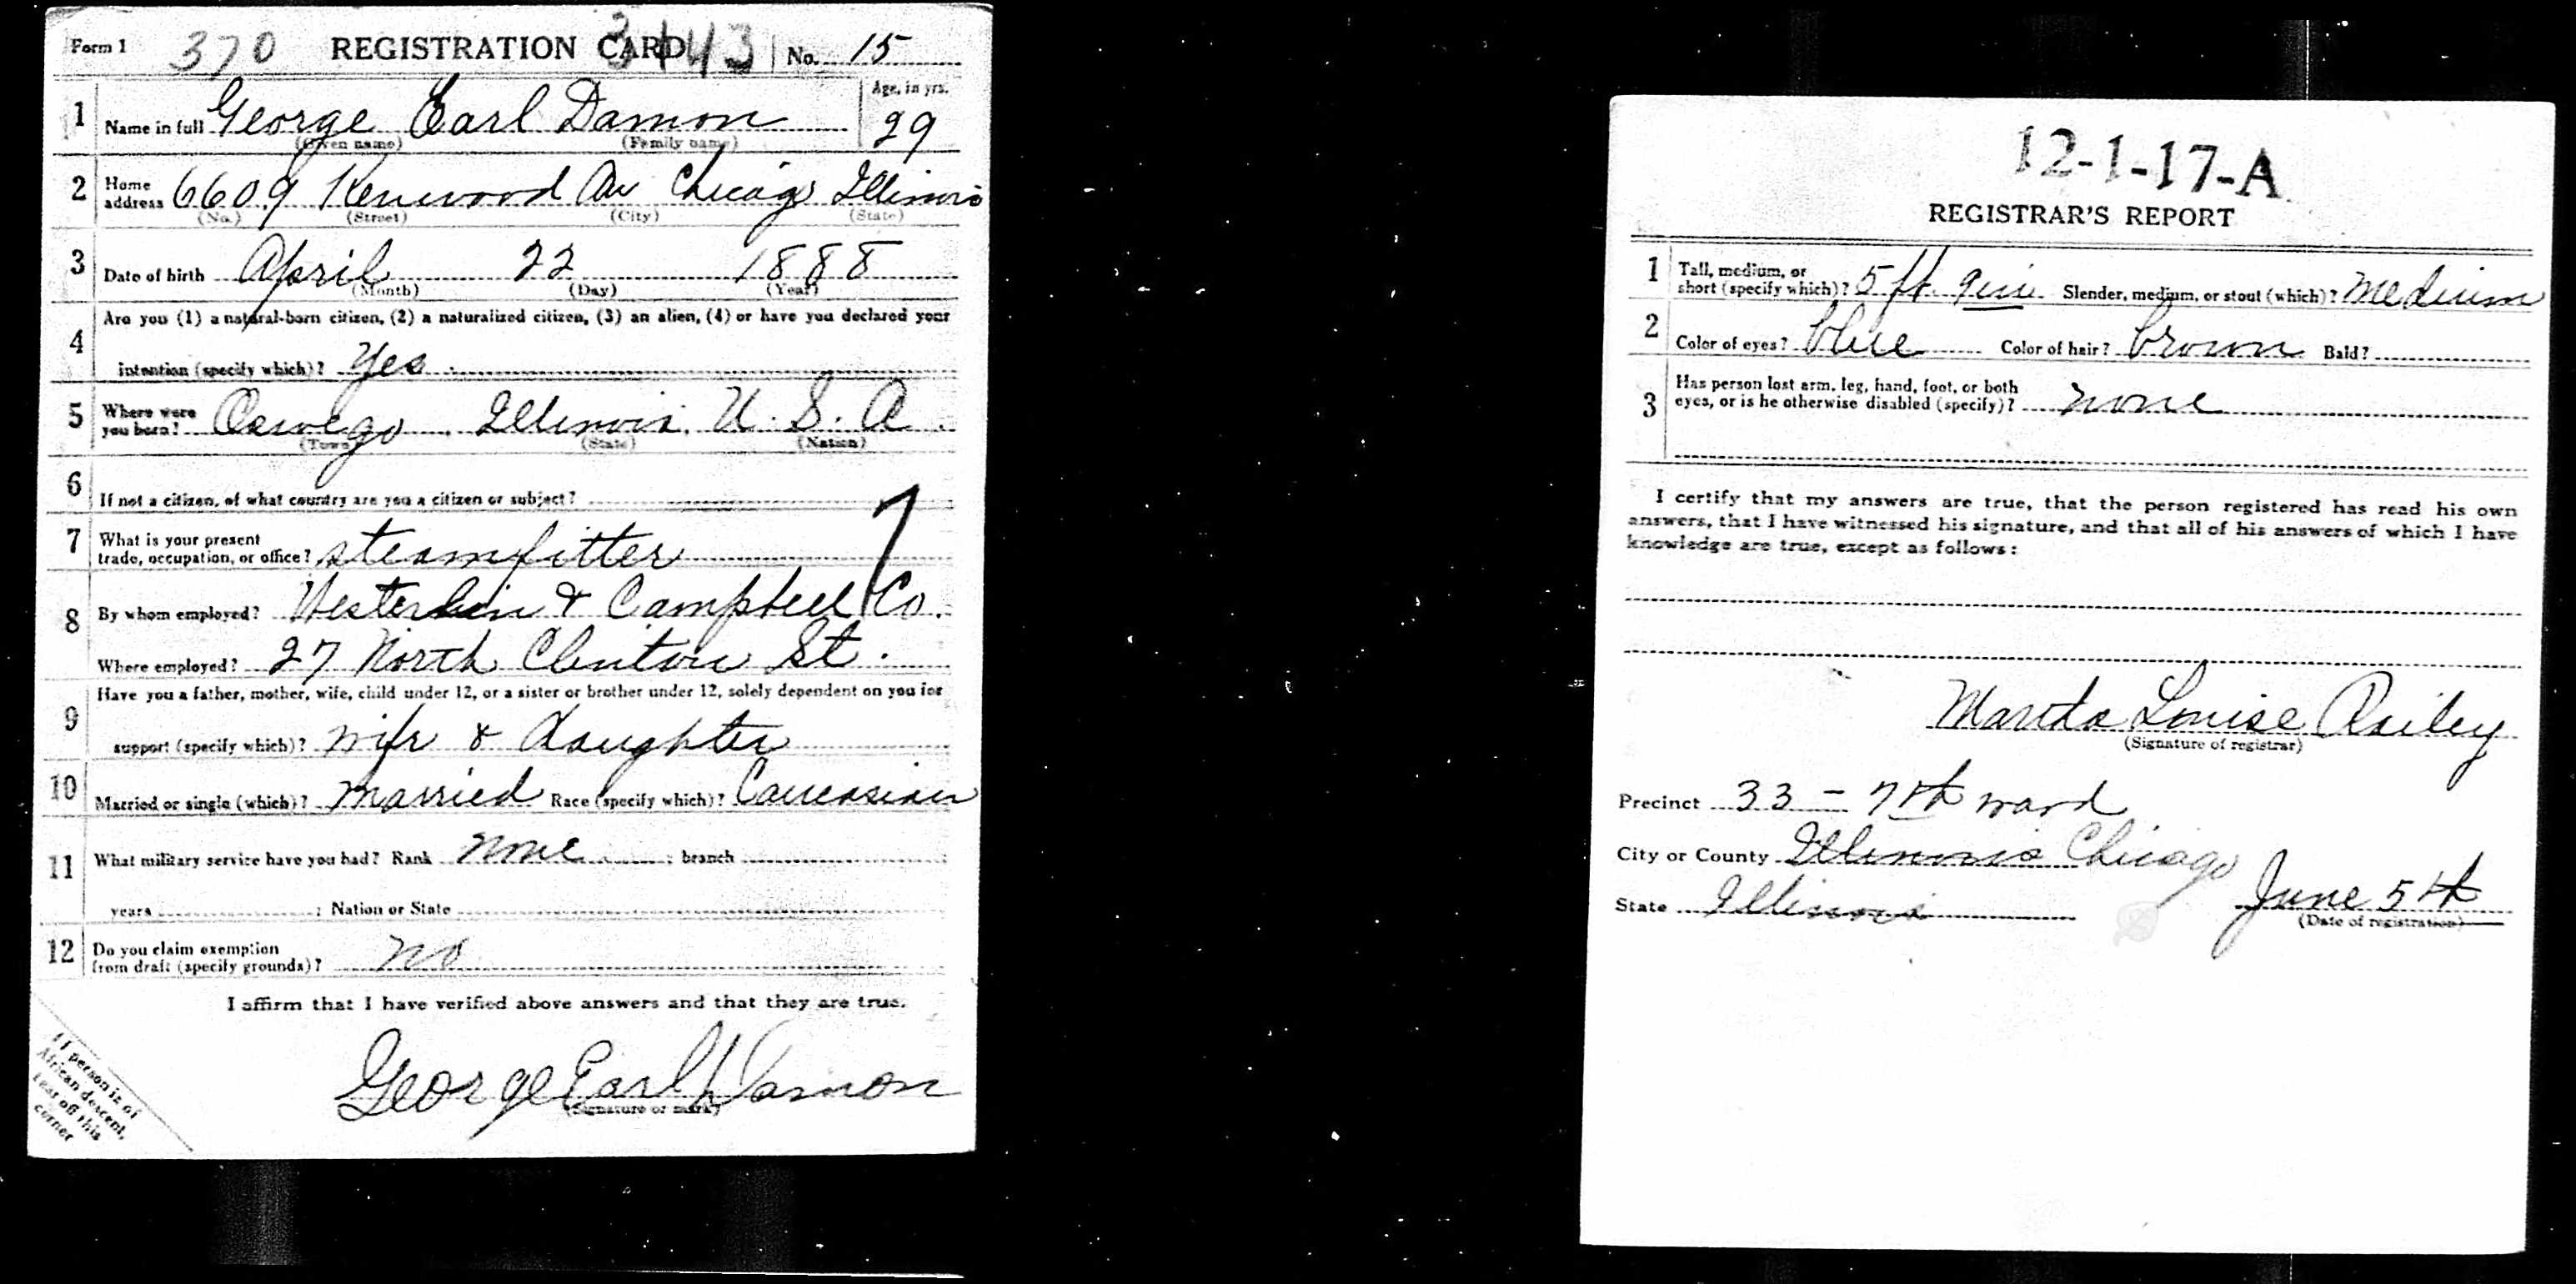 Form 1 370 REGISTRATION CARD 3143 No. 15
1 Name in full George Earl Damon Age, in yrs. 29
(Given name) (Family name)
2 Home address 6609 Kenwood Av Chicago Illinois
(No.) (Street) (City) (State)
3 Date of birth April 22 1888
(Month) (Day) (Year)
4 Are you (1) a natural-born citizen, (2) a naturalized citizen, (3) an alien, (4) or have you declared your
intention (specify which)? Yes
5 Where were you born? Oswego Illinois U. S. A
(Town) (State) (Nation)
6 If not a citizen, of what country are you a citizen or subject?
7 What is your present
trade, occupation, or office? steamfitter
8 By whom employed? & Campbell Co.
Where employed? 27 North Clinton St.
9 Have you a father, mother, wife, child under 12, or a sister or brother under 12, solely dependent on you for
support (specify which)? wife & daughter
10 Married or single (which)? married Race (specify which)? Caucasian
11 What military service have you had? Rank none ; branch
years ; Nation or State
12 Do you claim exemption
from draft (specify grounds)? no
I affirm that I have verified above answers and that they are true.
George Earl Damon
(Signature or mark)
If person is of
African descent,
tear off this
corner
12-1-17-A
REGISTRAR'S REPORT
1 Tall, medium, or
short (specify which)? 5 ft. 9 in Slender, medium, or stout (which)? medium
2 Color of eyes? blue Color of hair? brown Bald?
3 Has person lost arm, leg, hand, foot, or both
eyes, or is he otherwise disabled (specify)? none
I certify that my answers are true, that the person registered has read his own
answers, that I have witnessed his signature, and that all of his answers of which I have
knowledge are true, except as follows:
Louise
(Signature of registrar)
Precinct 33 - 7th ward
City or County Illinois Chicago
State Illinois June 5th
(Date of registration)